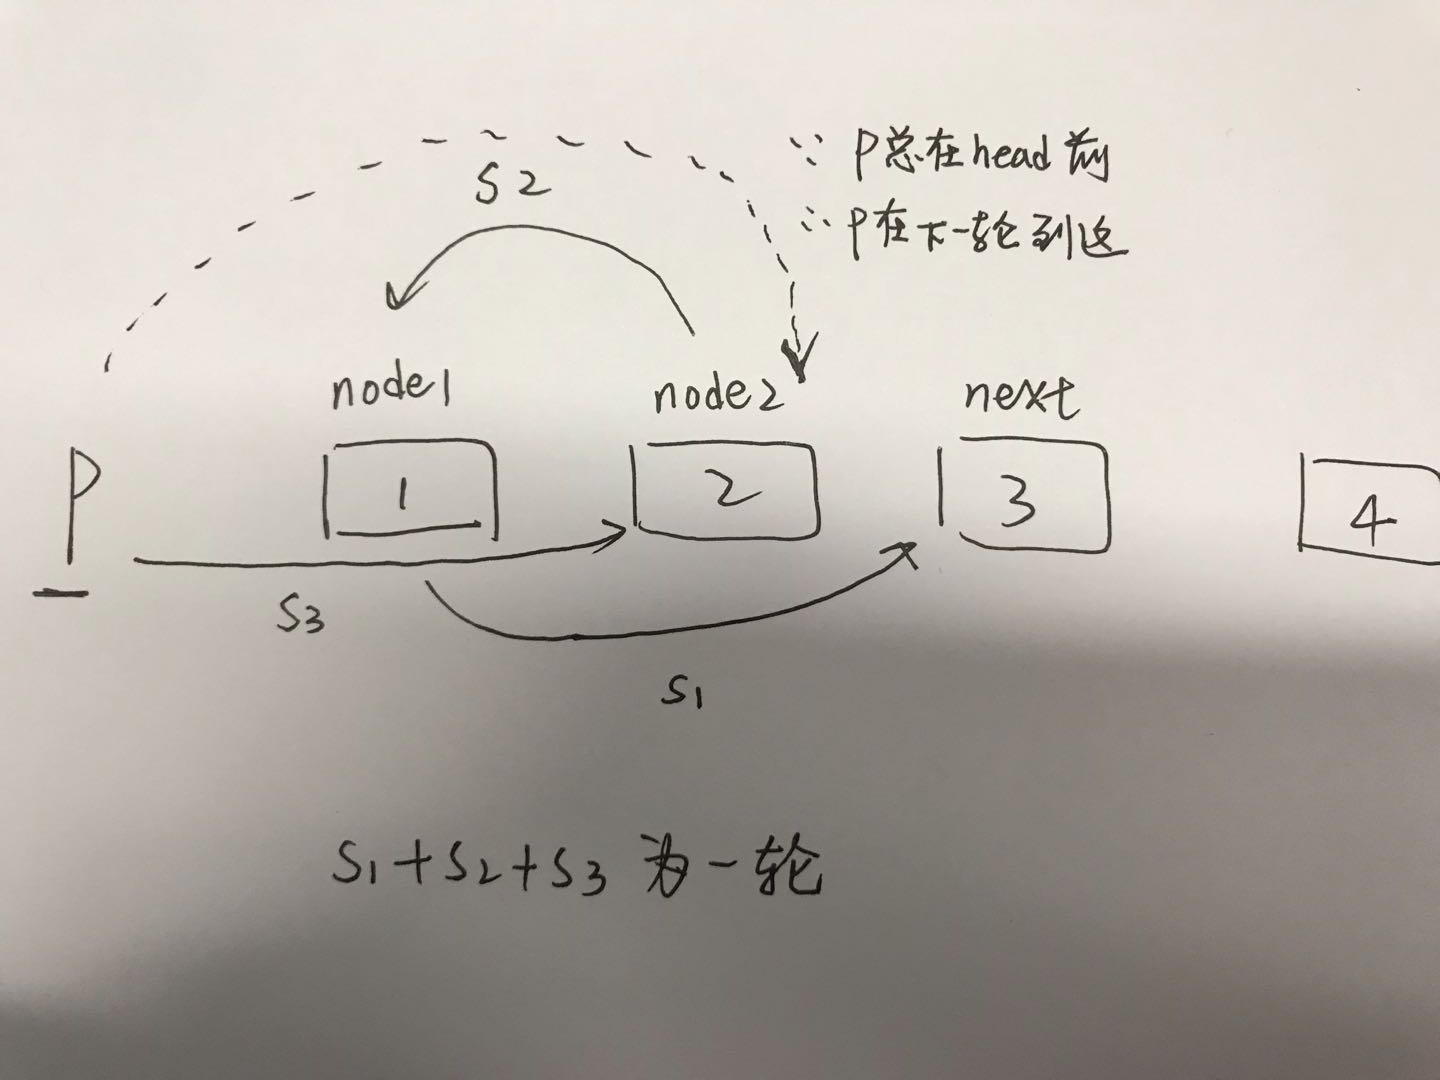 ∵ P总在head前
S2
∴ P在下一轮到这
node1 node2 next
P 1 2 3 4
S3
S1
S1+S2+S3 为一轮